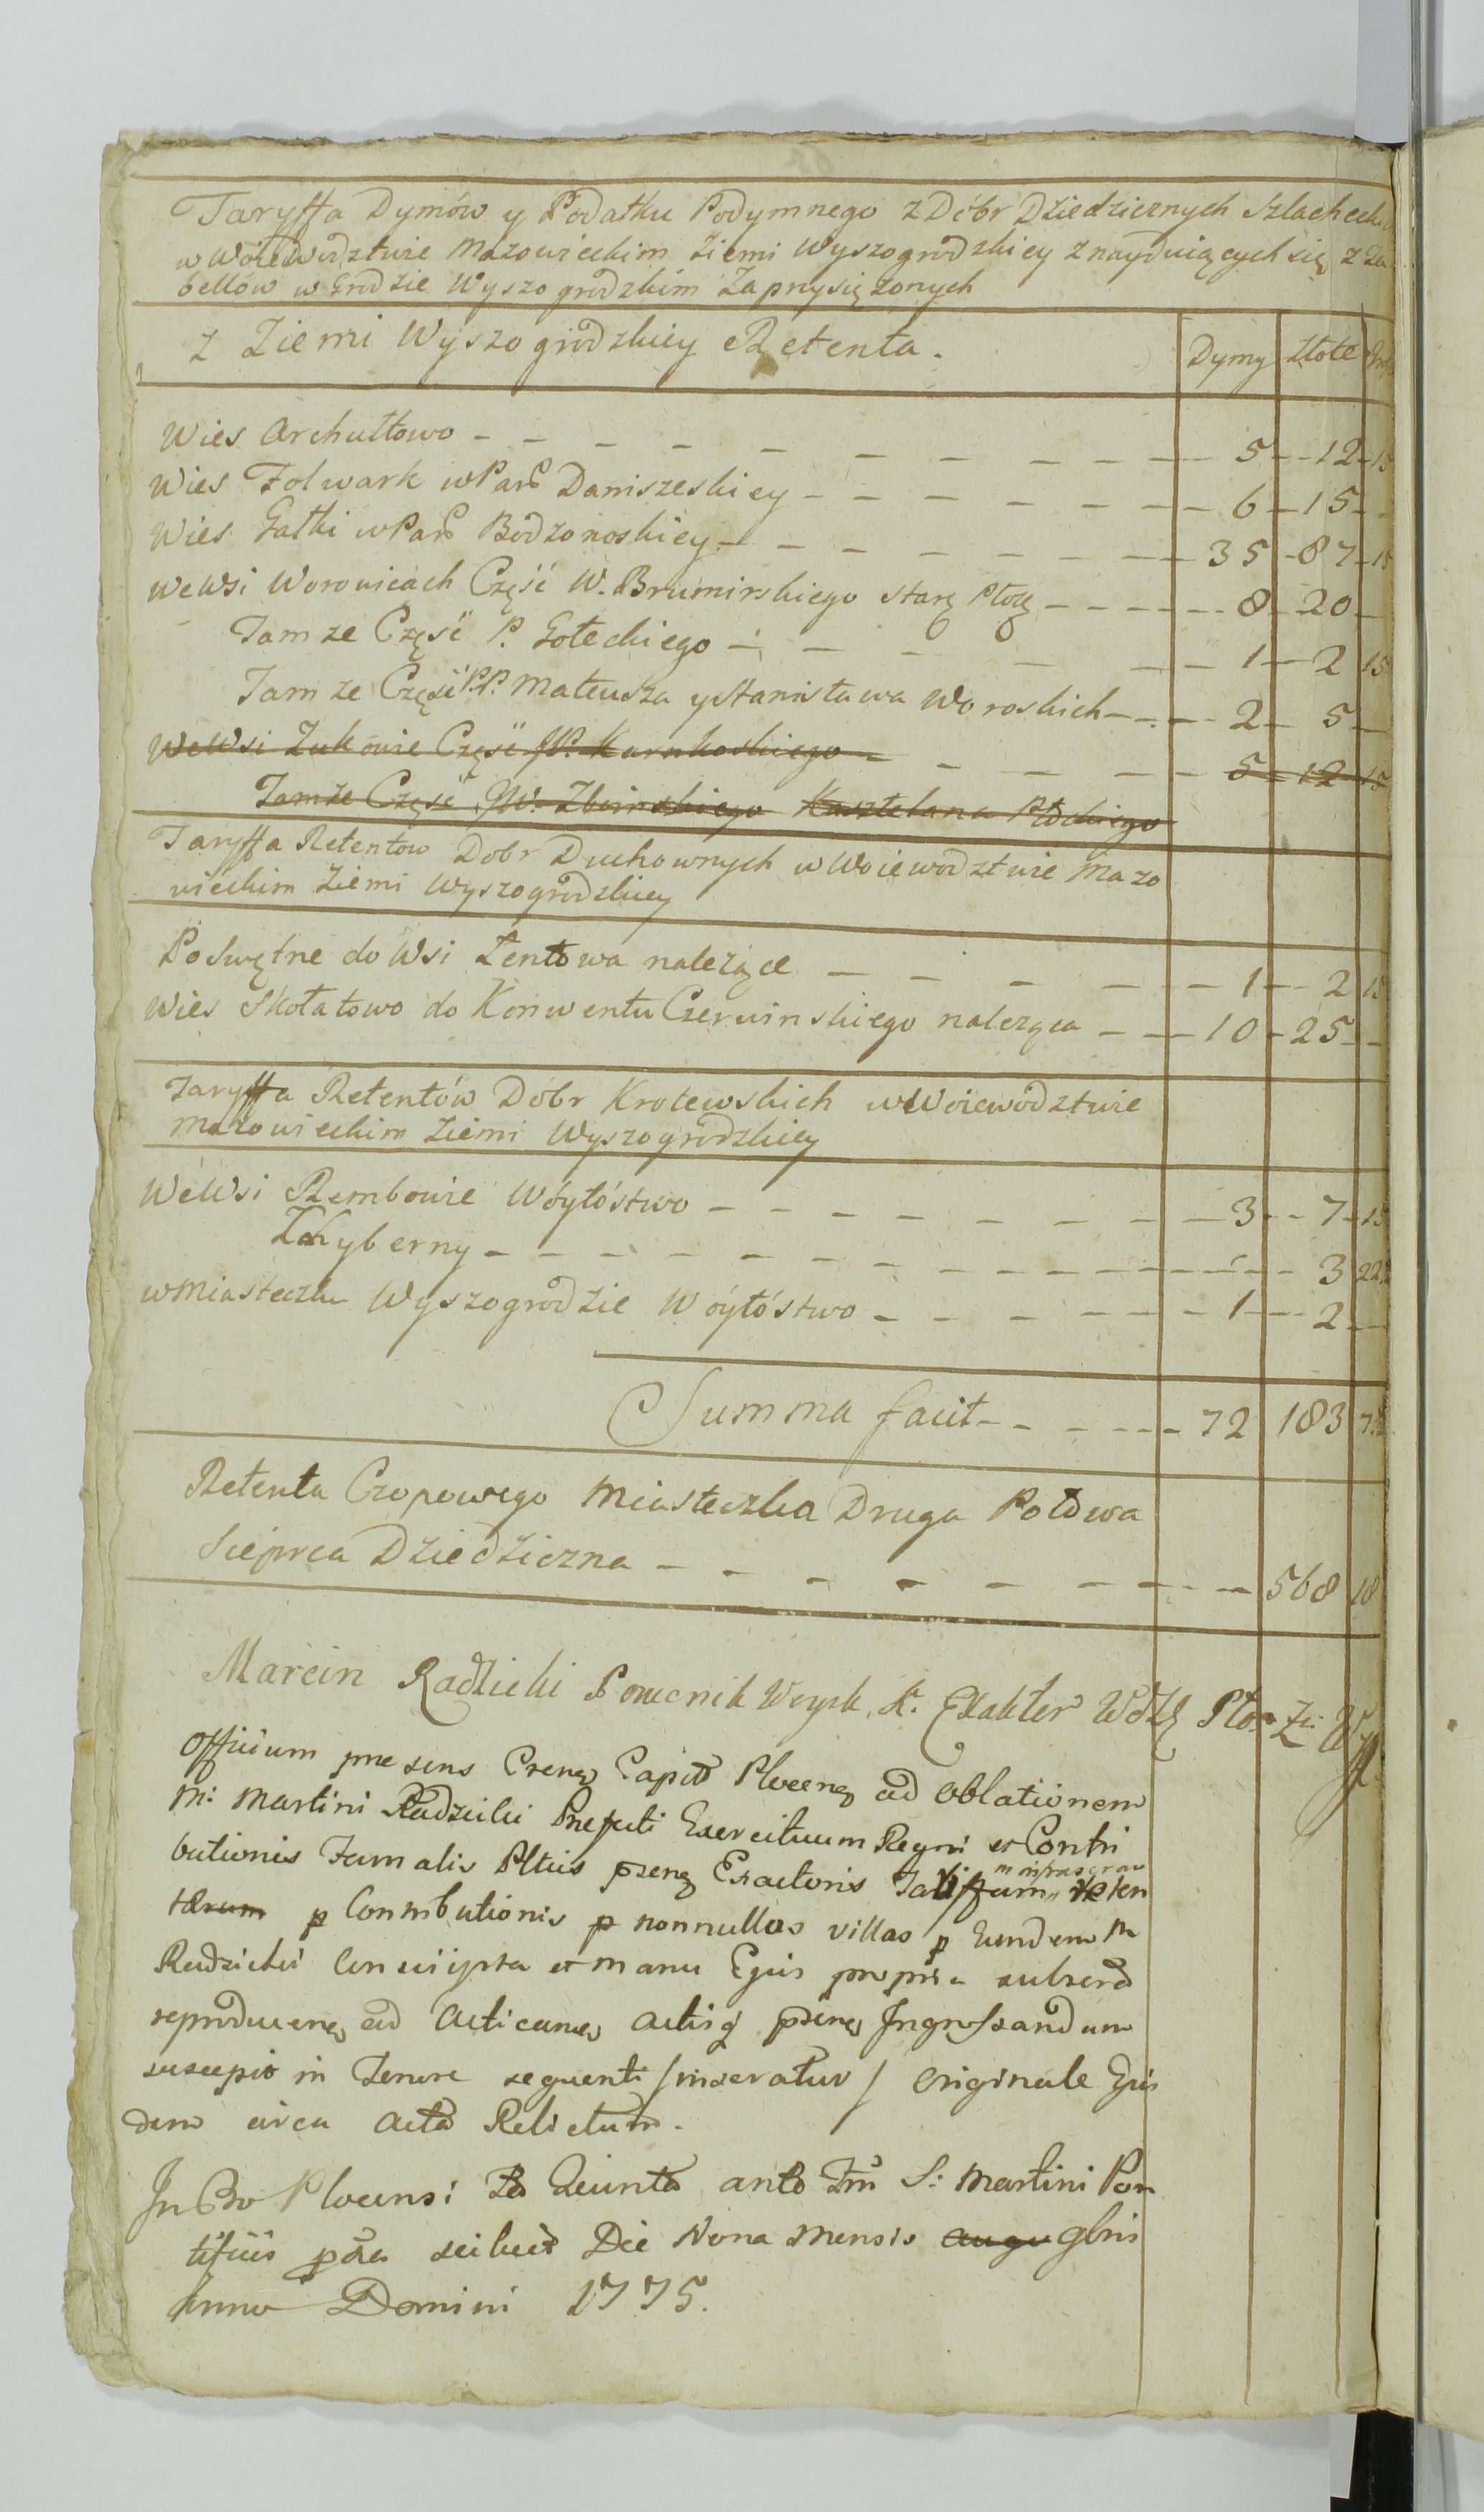 Taryffa Dymów y Podatku Podymnego z Dóbr Dziedzicznych Szlacheck
w Woiewodztwie Mazowieckim Ziemi Wyszogrodzkiey znayduiących się z Za
bellów w Grodzie Wyszogrodzkim Zaprzysiężonych
z Ziemi Wyszogrodzkiey Retenta. Dymy Złote
Wies Archutowo - - - 5 - 12 - 15
Wies Folwark w Par Daniszeskiey - - - 6 - 15 - -
Wies Gałki w Par Bodzonoskiey - - - 35 - 87 - 15
We Wsi Woronicach Część W. Brumirskiego - - - 8 - 20 -
Tamze Część P. Goteckiego - - - 1 - 2 15
Tamze Część PP. Mateusza y Stanisława Woroskich - - - 2 - 5 -
We Wsi Zukowie Część JP. Karnkoskiego - - - 5 - 12 15
Tamze Część JW. Zboinskiego Kasztelana Płockiego
Taryffa Retentow Dobr Duchownych w Woiewodztwie Mazo
wieckim Ziemi Wyszogrodzkiey
Poswętne do Wsi Zentowa nalezące - - - 1 - 2 15
Wies Skołatowo do Konwentu Czerwinskiego naleząca - - - 10 - 25 - -
Taryffa Retentów Dobr Krolewskich w Woiewodztwie
Mazowieckim Ziemi Wyszogrodzkiey
We Wsi Rembowie Wóytóstwo - - - 3 - - 7 - 15
- - - 3 22
w Miasteczku Wyszogrodzie Wóytóstwo - - - 1 - - 2 -
Summa facit - - - 72 183 7
Retenta Czopowego Miasteczka Druga Połowa
Sieprca Dziedziczna - - - 568 18
Marcin Radzicki Porucnik Woysk. K. Exaktor Wdz Pło Zi
Officium presens Crens Capit Plocens ad Oblationem
M: Martini Radzicki Prefecti Exercituum Regni et Contri
butionis Fumalis Pltus Exactoris Tariffam
Contributionis p nonnullas villas p Eundem M
Radzicki Conscripta et manu Ejus propria subscr
reproducens ad Acticans actisq Ingrossandum
suscepit in Tenore sequenti /inseratur/ Originale Ejus
dem circa acta Relictum.
In Plocensi Quinta ante S: Martini Pon
tificis scilicet Die Nona Mensis augu 9bris
Anno Domini 1775.